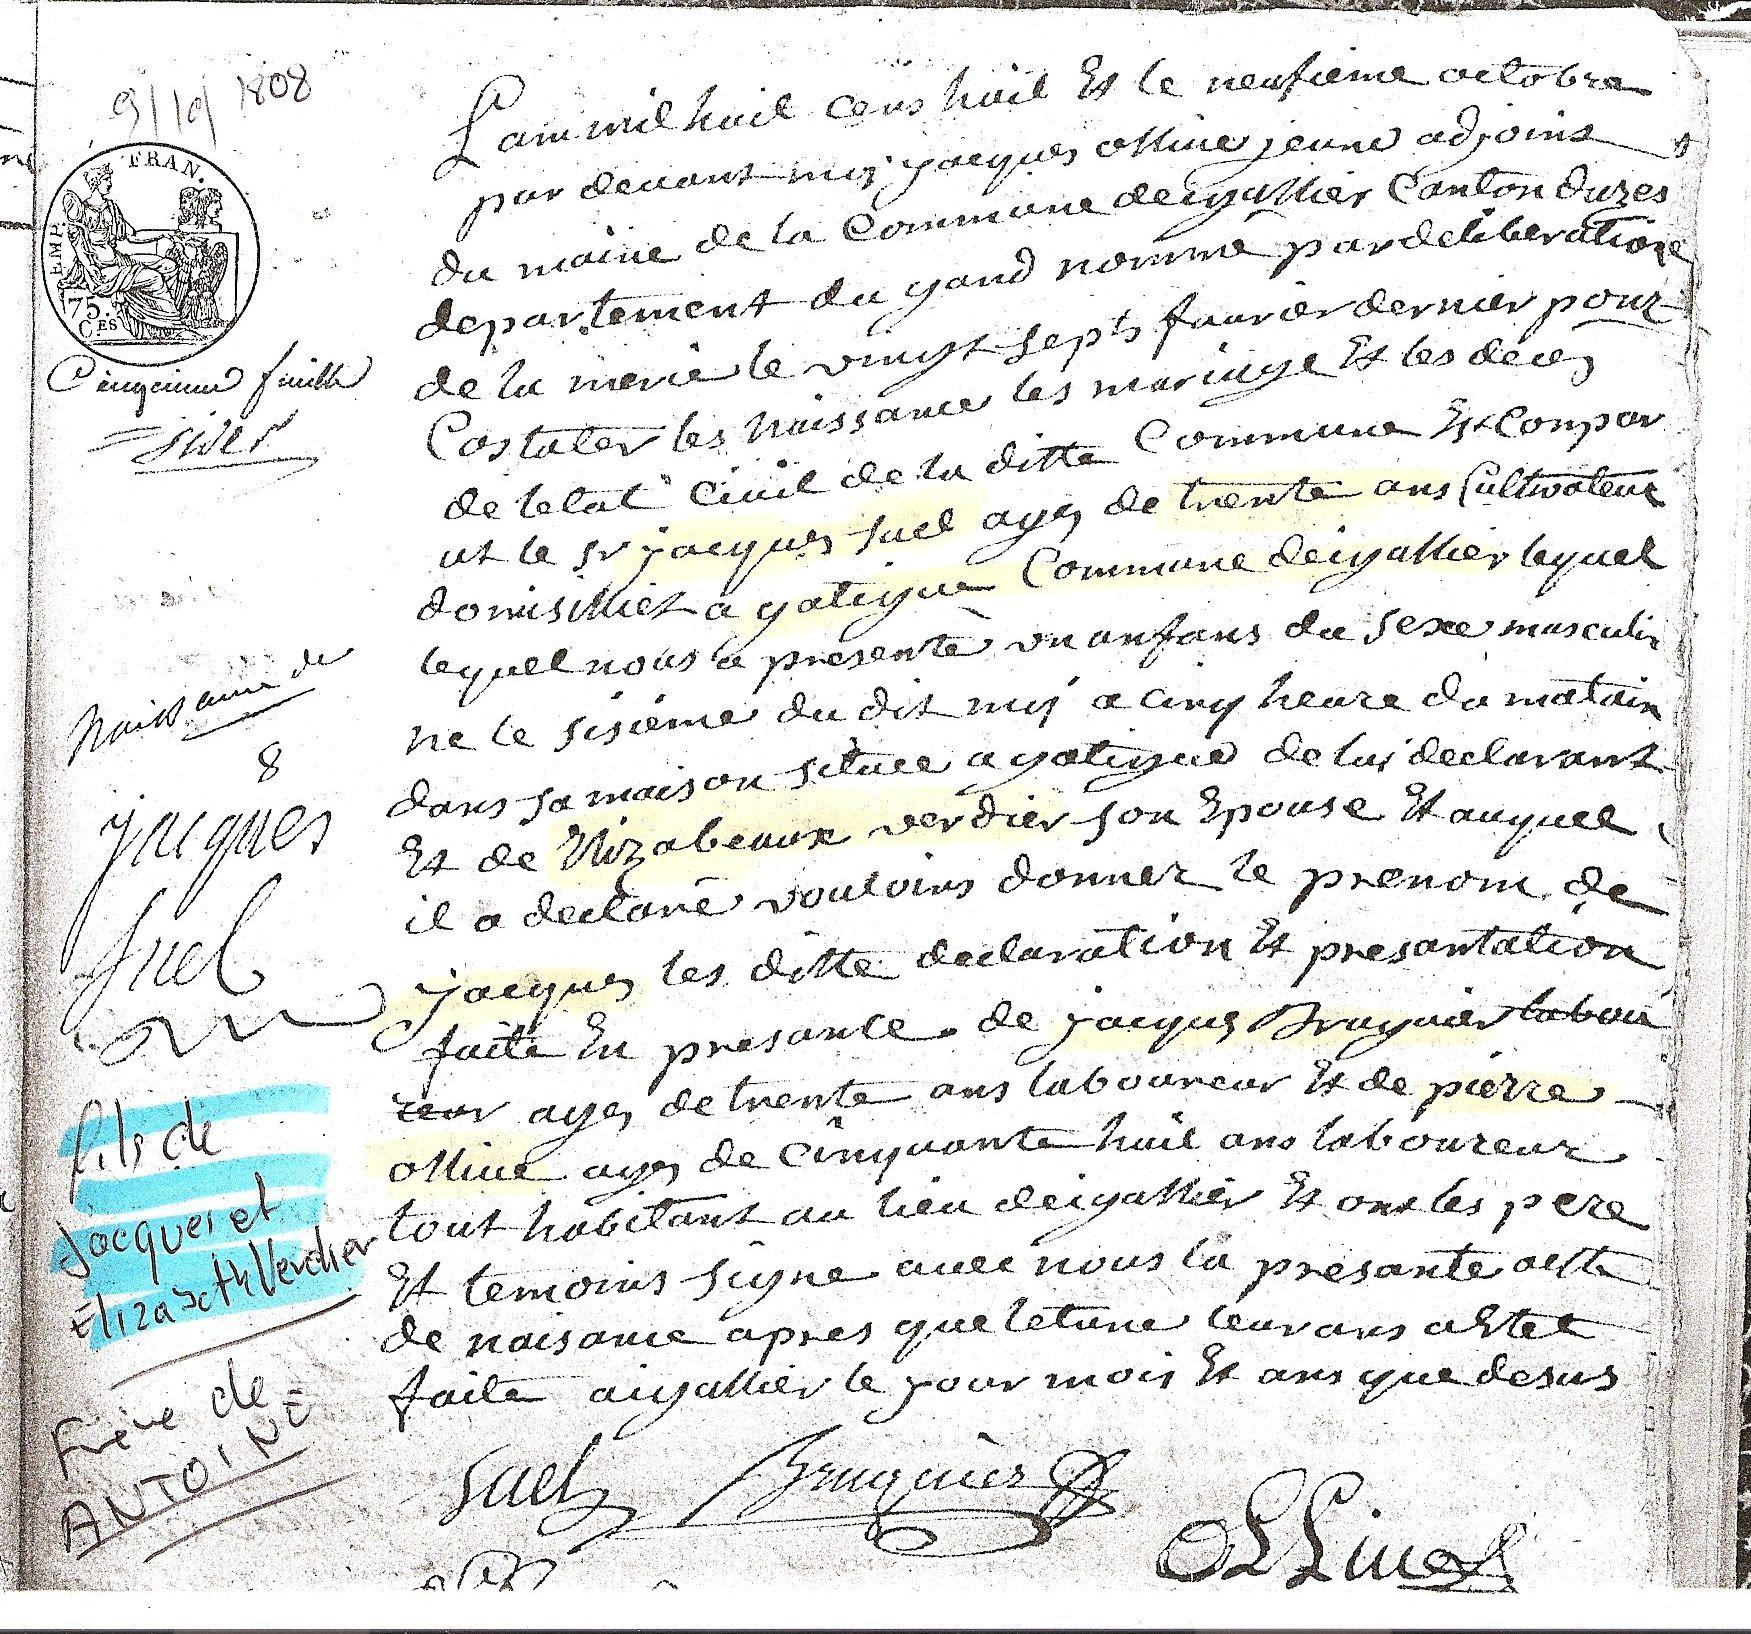 9/10/1808
EMP. FRAN.
75.
CES
Cinquieme feuille
Naissance de
8
jacques
Suel
fils de
Jacques et
Elizabeth Verdier
Frère de
ANTOINE
Lan mil huit cens huit Et le neufieme octobre
par devant moy jacques olliue jeune adjoint
du maire de la Commune deigallier Canton duzes
departement du gard nommé par deliberation
de la merie le vingt septs feurier dernier pour
Costater les Naissance les mariage Et les deces
de letat Ciuil de la ditte Commune Est Conpar
ut le sr jacques suel ages de trente ans Cultivateur
domisilliet a gatigue Commune deigallier lequel
lequel nous a presente un anfans du sexe masculin
ne le sisieme du dit moy a cinq heure du matain
dans sa maison situee a gatigue de luj declarant
Et de Elizabeaux verdier son Epouse Et auquel
il a declaré vouloins donner le prenom de
jacques les ditte declaration Et presantation
faite En presance de jacques Bruguier labou
reur ages de trente ans laboureur Et de pierre
olliue ages de cinquante huit ans laboureur
tout habitant au lieu deigallier Et ont les pere
Et temoins signe avec nous la presante acte
de naisance apres que leture leur ans a Etet
faite aigallier le jour mois Et ans que desus
Suel Bruguier
OLLiue